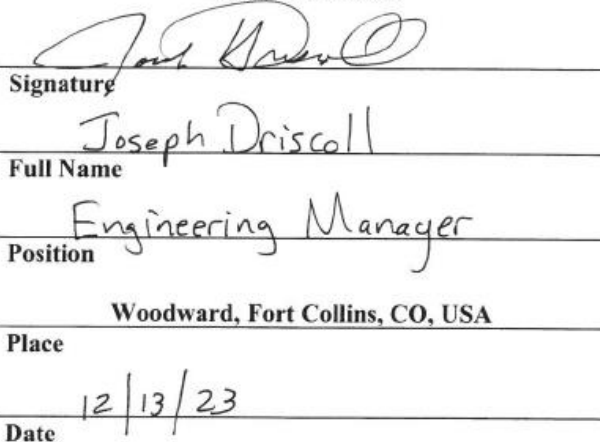 Signature
Joseph Driscoll
Full Name
Engineering Manager
Position
Woodward, Fort Collins, CO, USA
Place
12/13/23
Date